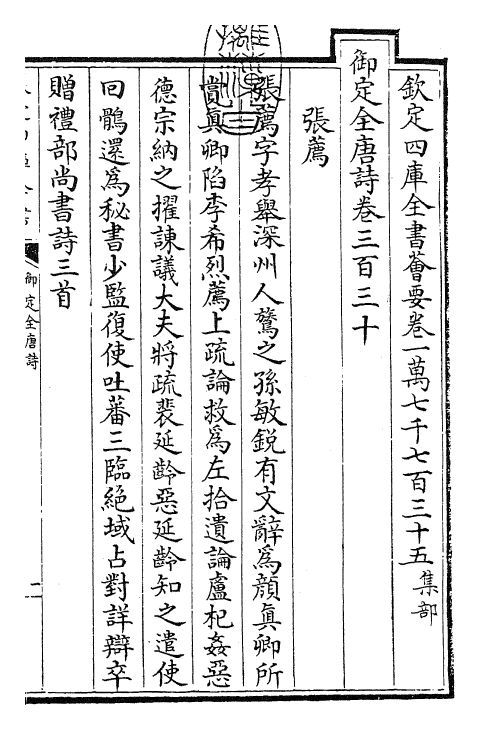 欽定四庫全書薈要卷一萬七千七百三十五集部
御定全唐詩卷三百三十
張薦
張薦字孝舉深州人鷟之孫敏鋭有文辭為顔眞卿所
賞眞卿陷李希烈薦上疏論救為左拾遺論盧杞姦惡
德宗納之擢諫議大夫將疏裴延齡惡延齡知之遣使
回鶻還為秘書少監復使吐蕃三臨絶域占對詳辯卒
贈禮部尚書詩三首
御定全唐詩